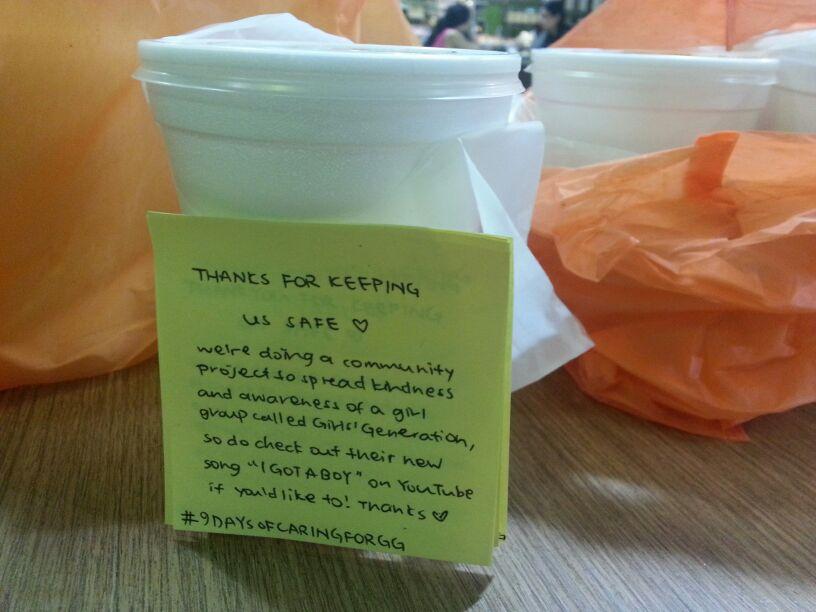 THANKS FOR KEEPING
US SAFE ♡
we're doing a community
project to spread kindness
and awareness of a girl
group called Girls' Generation,
so do check out their new
song "I GOT A BOY" on YouTube
if you'd like to! Thanks ♡
#9DAYSOFCARINGFORGG